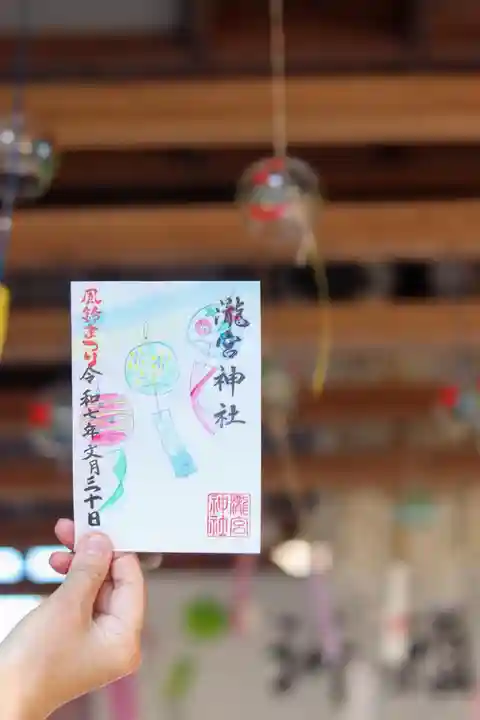 瀧宮神社
風鈴まつり令和七年文月三十日
瀧宮
神社